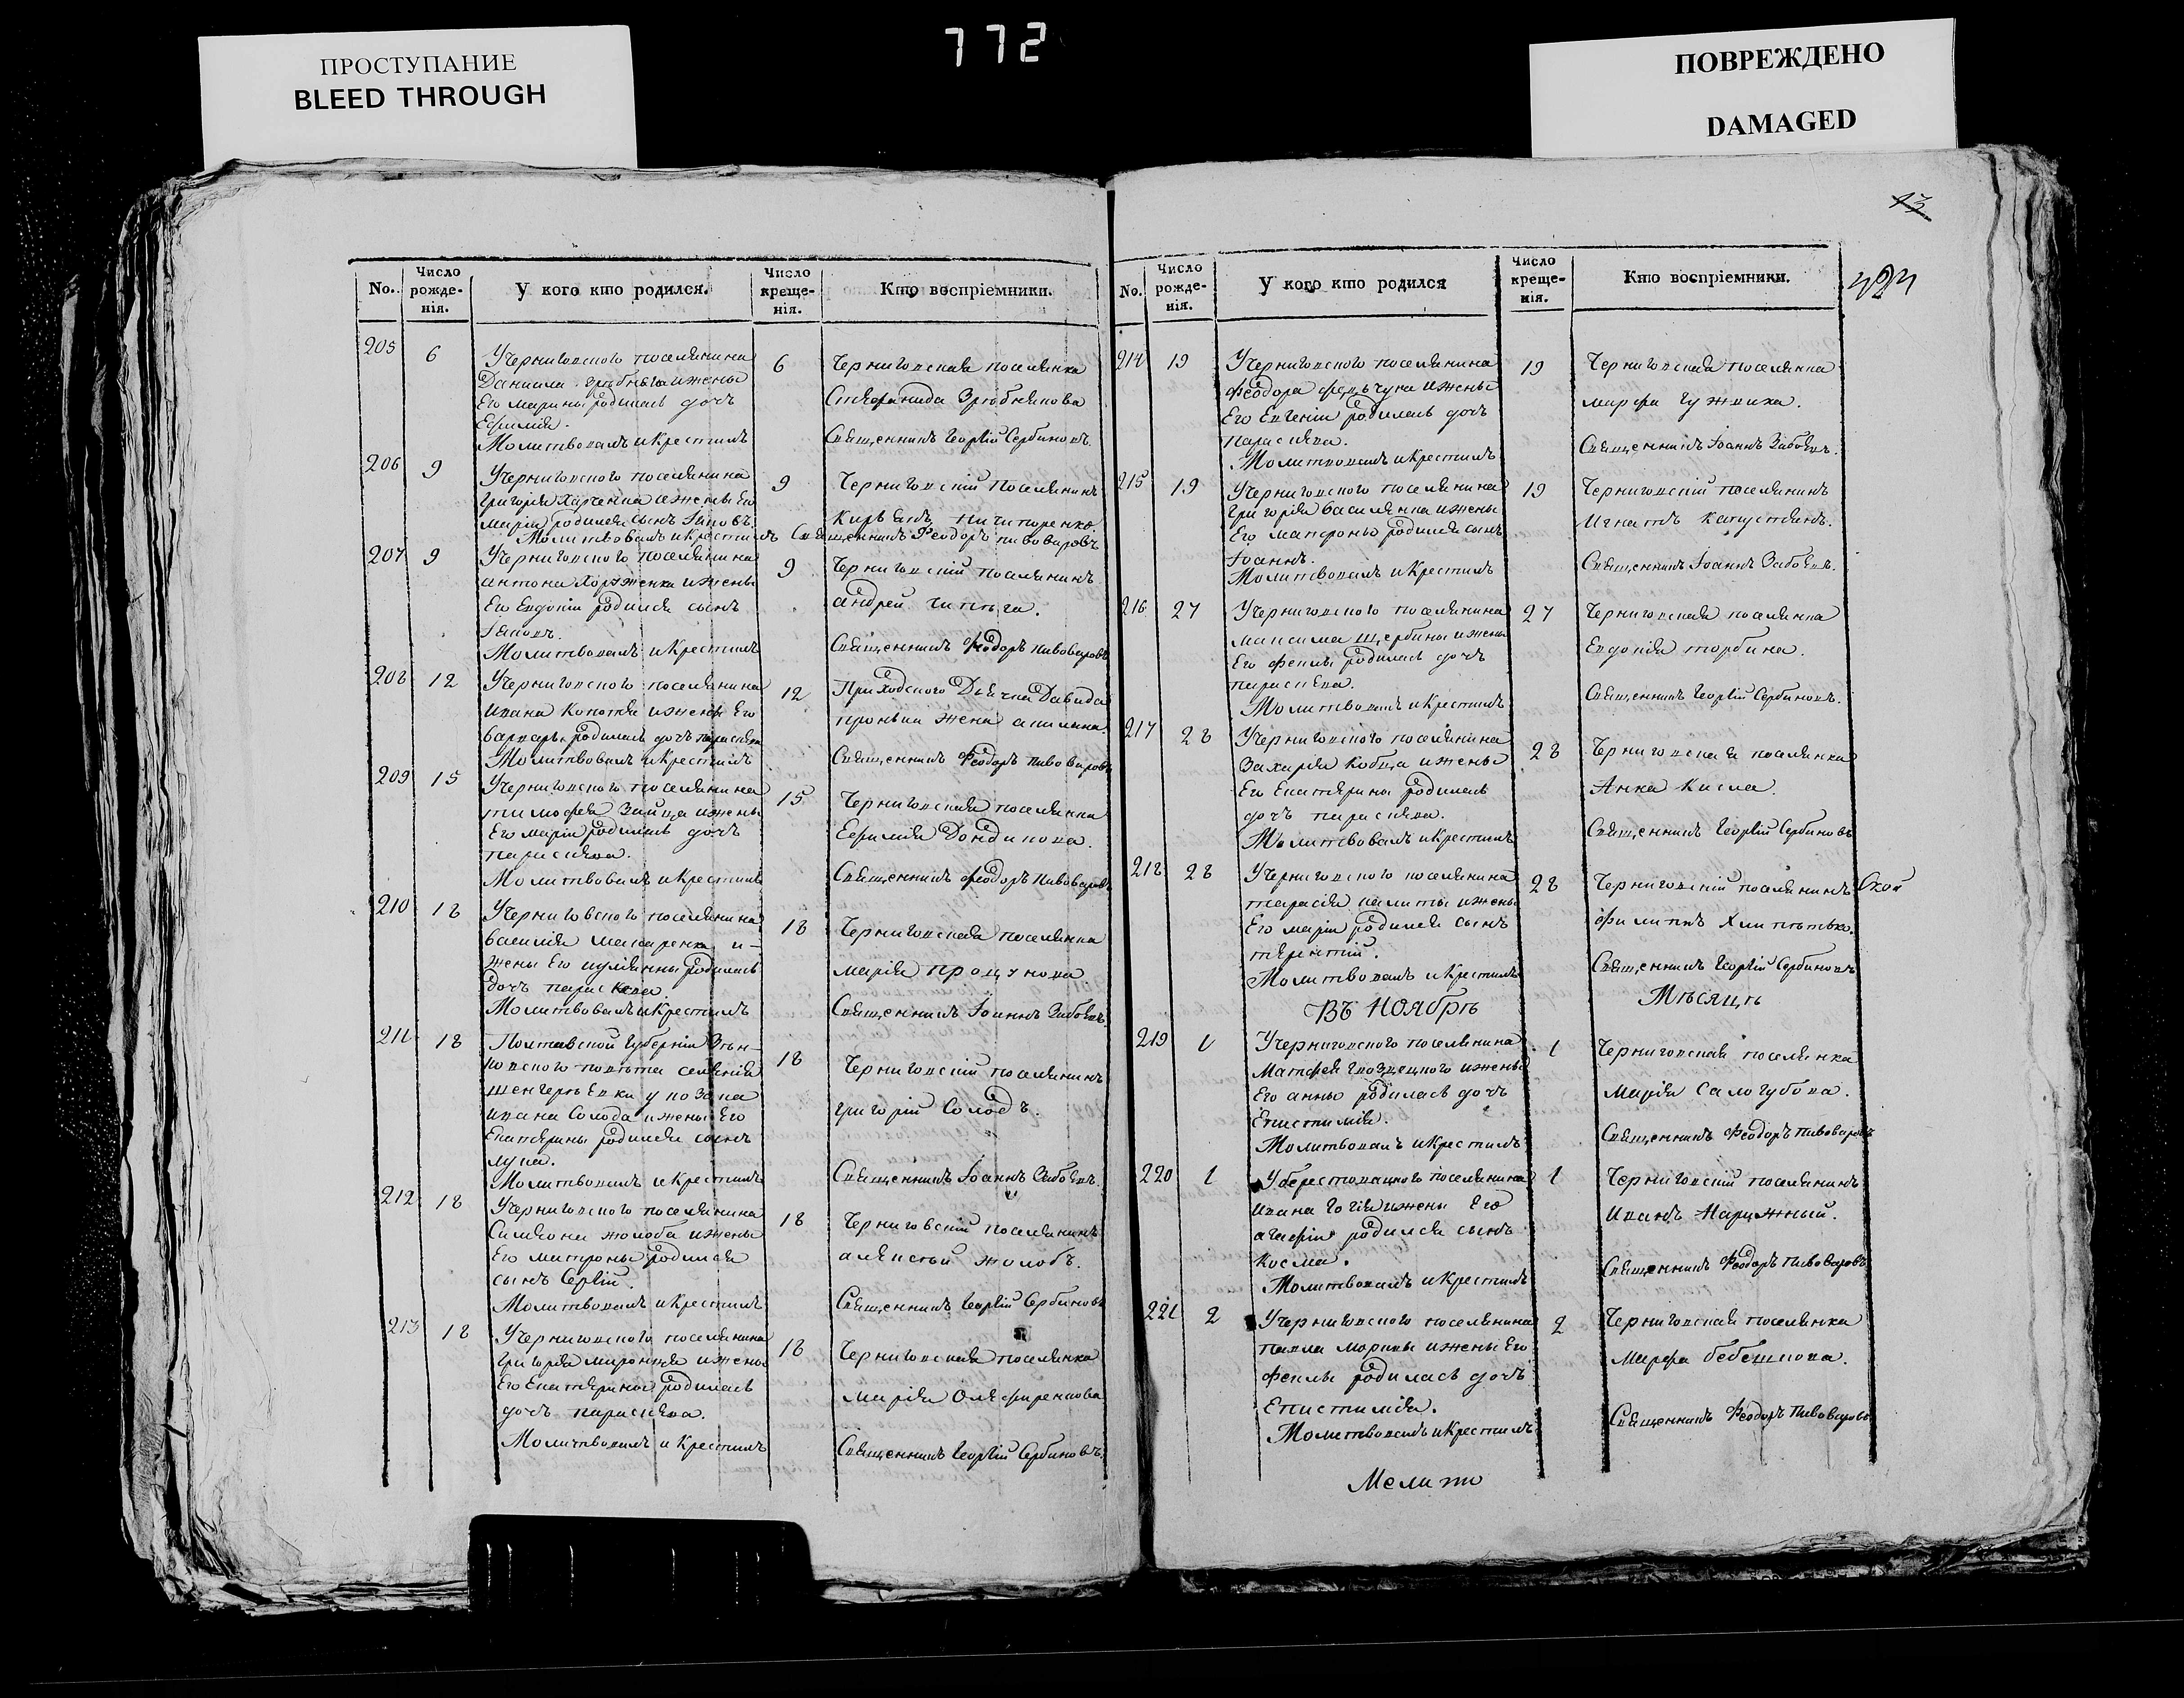 ПРОСТУПАНИЕ
BLEED THROUGH
772
ПОВРЕЖДЕНО
DAMAGED
13
No.
Число рожденія.
У кого кто родился.
Число крещенія.
Кто воспріемники.
205
6
У Черниговского поселянина
Даниила Грибняга и жены
Его Марины родилась дочь
Ефимія.
Молитвовалъ и Крестилъ
6
Черниговская поселянка
Стефанида
Священникъ Георгій Сербиновъ.
206
9
У Черниговского поселянина
Григорія Харченка и жены Его
Маріи родился сынъ Іаковъ.
Молитвовалъ и Крестилъ
9
Черниговскій поселянинъ
Кирьякъ Ничипоренко
Священникъ Феодоръ Пивоваровъ
207
9
У Черниговского поселянина
Антона и жены
Его Евдокіи родился сынъ
Іаковъ.
Молитвовалъ и Крестилъ
9
Черниговскій поселянинъ
Андрей
Священникъ Феодоръ Пивоваровъ
208
12
У Черниговского поселянина
Ивана и жены Его
Варвары родилась дочь Параскева
Молитвовалъ и Крестилъ
12
Приходского Дьячка Давида
жена Акилина.
Священникъ Феодоръ Пивоваровъ
209
15
У Черниговского поселянина
Тимофея Зайца и жены
Его Маріи родилась дочь
Параскева.
Молитвовалъ и Крестилъ
15
Черниговская поселянка
Ефимія Дондикова.
Священникъ Феодоръ Пивоваровъ
210
18
У Черниговского поселянина
Василия Макаренка и
жены Его Иулианны родилась
дочь Параскева
Молитвовалъ и Крестилъ
18
Черниговская поселянка
Марія Процукова
Священникъ Іоаннъ
211
18
Полтавской Губерніи Зѣнь
ковского повѣта селенія
у козака
Ивана Солода и жены Его
Екатерины родился сынъ
Лука.
Молитвовалъ и Крестилъ
18
Черниговскій поселянинъ
Григорій Солодъ.
Священникъ Іоаннъ
212
18
У Черниговского поселянина
Симеона Жолоба и жены
Его Матроны родился
сынъ Сергій.
Молитвовалъ и Крестилъ
18
Черниговскій поселянинъ
Алексѣй Жолобъ.
Священникъ Георгій Сербиновъ
213
18
У Черниговского поселянина
Григорія и жены
Его Екатерины родилась
дочь Параскева.
Молитвовалъ и Крестилъ
18
Черниговская поселянка
Марія Олефиренкова
Священникъ Георгій Сербиновъ.
No.
Число рожденія.
У кого кто родился
Число крещенія.
Кто воспріемники.
214
19
У Черниговского поселянина
Феодора Федьчука и жены
Его Евгеніи родилась дочь
Параскева.
Молитвовалъ и Крестилъ
19
Черниговская поселянка
Марфа
Священникъ Іоаннъ
215
19
У Черниговского поселянина
Григорія Василенка и жены
Его Матроны родился сынъ
Іоаннъ.
Молитвовалъ и Крестилъ
19
Черниговскій поселянинъ
Игнатъ Капустянъ.
Священникъ Іоаннъ
216
27
У Черниговского поселянина
Максима Щербины и жены
Его Феклы родилась дочь
Параскева.
Молитвовалъ и Крестилъ
27
Черниговская поселянка
Евдокія Торбина.
Священникъ Георгій Сербиновъ.
217
28
У Черниговского поселянина
Захарія Кобца и жены
Его Екатерины родилась
дочь Параскева.
Молитвовалъ и Крестилъ
28
Черниговская поселянка
Анна Кисла.
Священникъ Георгій Сербиновъ
218
28
У Черниговского поселянина
Тарасія Калиты и жены
Его Маріи родился сынъ
Терентій.
Молитвовалъ и Крестилъ
28
Черниговскій поселянинъ
Филиппъ
Священникъ Георгій Сербиновъ
Въ Ноябрѣ
Мѣсяцѣ
219
1
У Черниговского поселянина
Матфея Гвоздецкого и жены
Его Анны родилась дочь
Епистимія.
Молитвовалъ и Крестилъ
1
Черниговская поселянка
Марія Салогубова.
Священникъ Феодоръ Пивоваровъ
220
1
У берестовацкого поселянина
Ивана и жены Его
Агафіи родился сынъ
Косма.
Молитвовалъ и Крестилъ
1
Черниговскій поселянинъ
Иванъ Нарижный.
Священникъ Феодоръ Пивоваровъ
221
2
У Черниговского поселянина
Павла и жены Его
Феклы родилась дочь
Епистимія.
Молитвовалъ и Крестилъ
2
Черниговская поселянка
Марфа Бебешкова.
Священникъ Феодоръ Пивоваровъ
Мелито